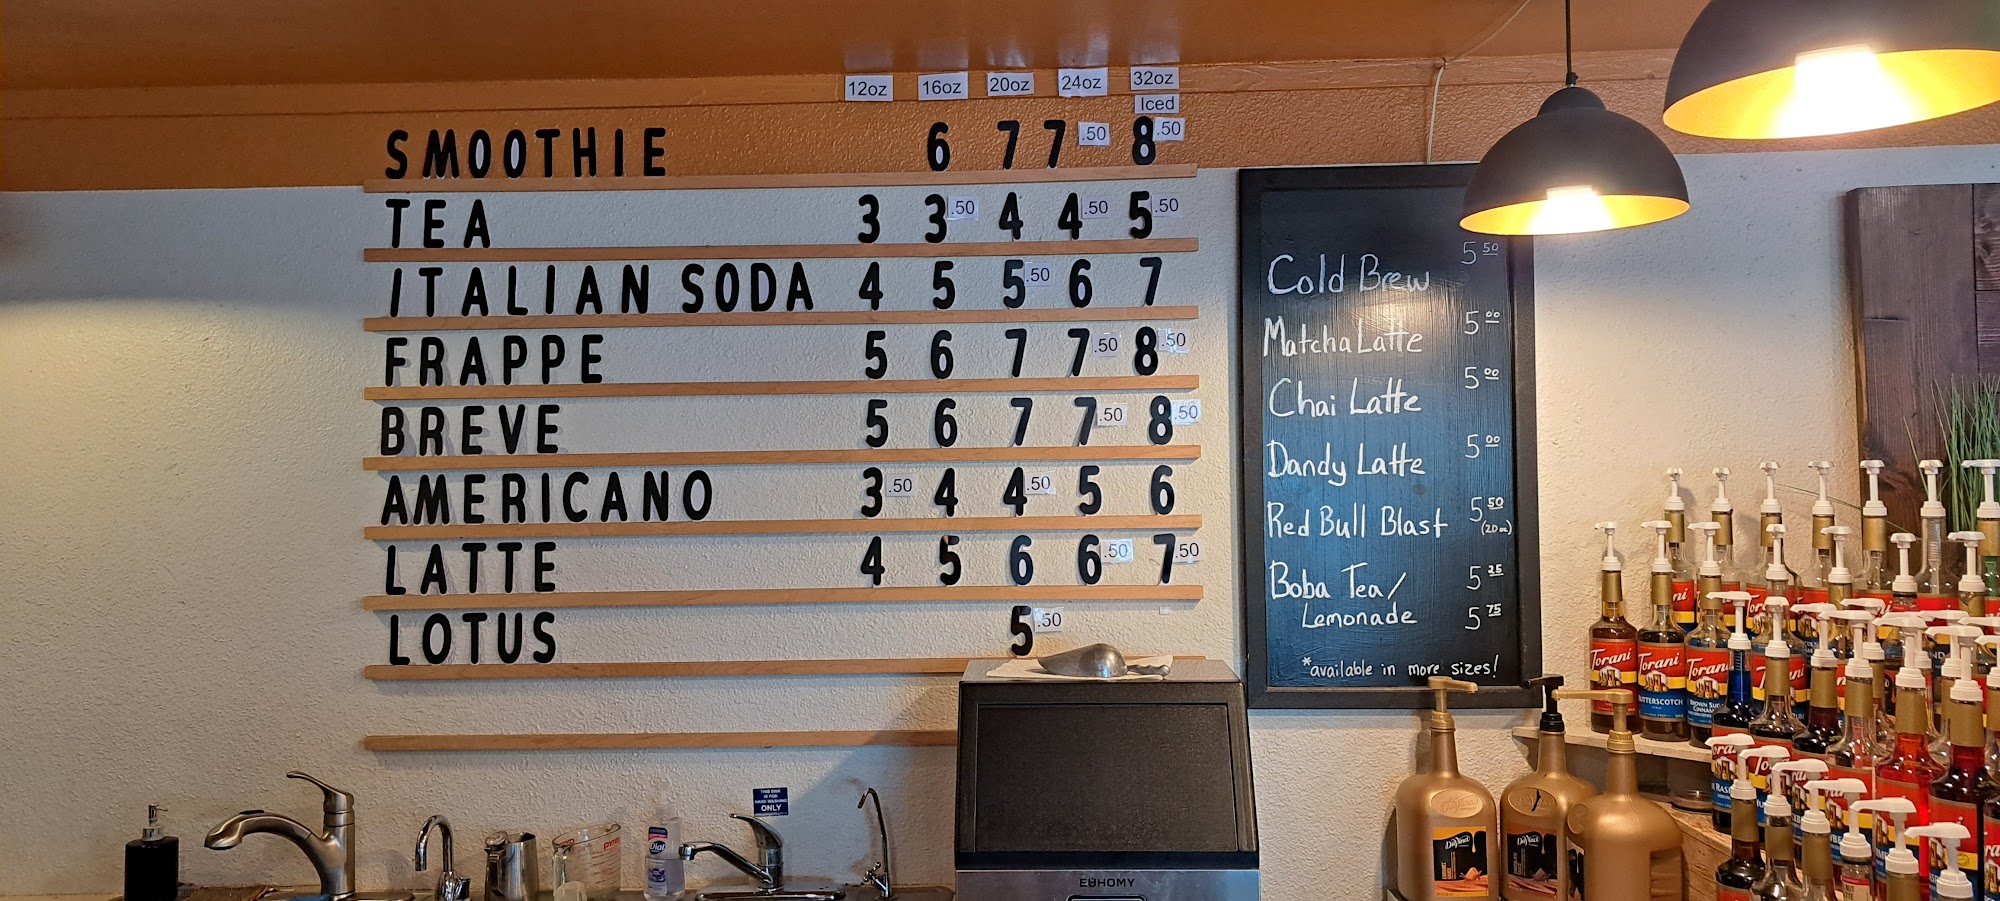 12oz 16oz 20oz 24oz 32oz
Iced
SMOOTHIE 6 7 7.50 8.50
TEA 3 3.50 4 4.50 5.50
ITALIAN SODA 4 5 5.50 6 7
FRAPPE 5 6 7 7.50 8.50
BREVE 5 6 7 7.50 8.50
AMERICANO 3.50 4 4.50 5 6
LATTE 4 5 6 6.50 7.50
LOTUS 5.50
Cold Brew 5 50
Matcha Latte 5 00
Chai Latte 5 00
Dandy Latte 5 00
Red Bull Blast 5 50
(20oz)
Boba Tea/ 5 25
Lemonade 5 75
*available in more sizes!
THIS SINK
IS FOR
HAND WASHING
ONLY
Dial
pyrex
EUHOMY
Torani
Torani
BUTTERSCOTCH
Torani
DaVinci
DaVinci